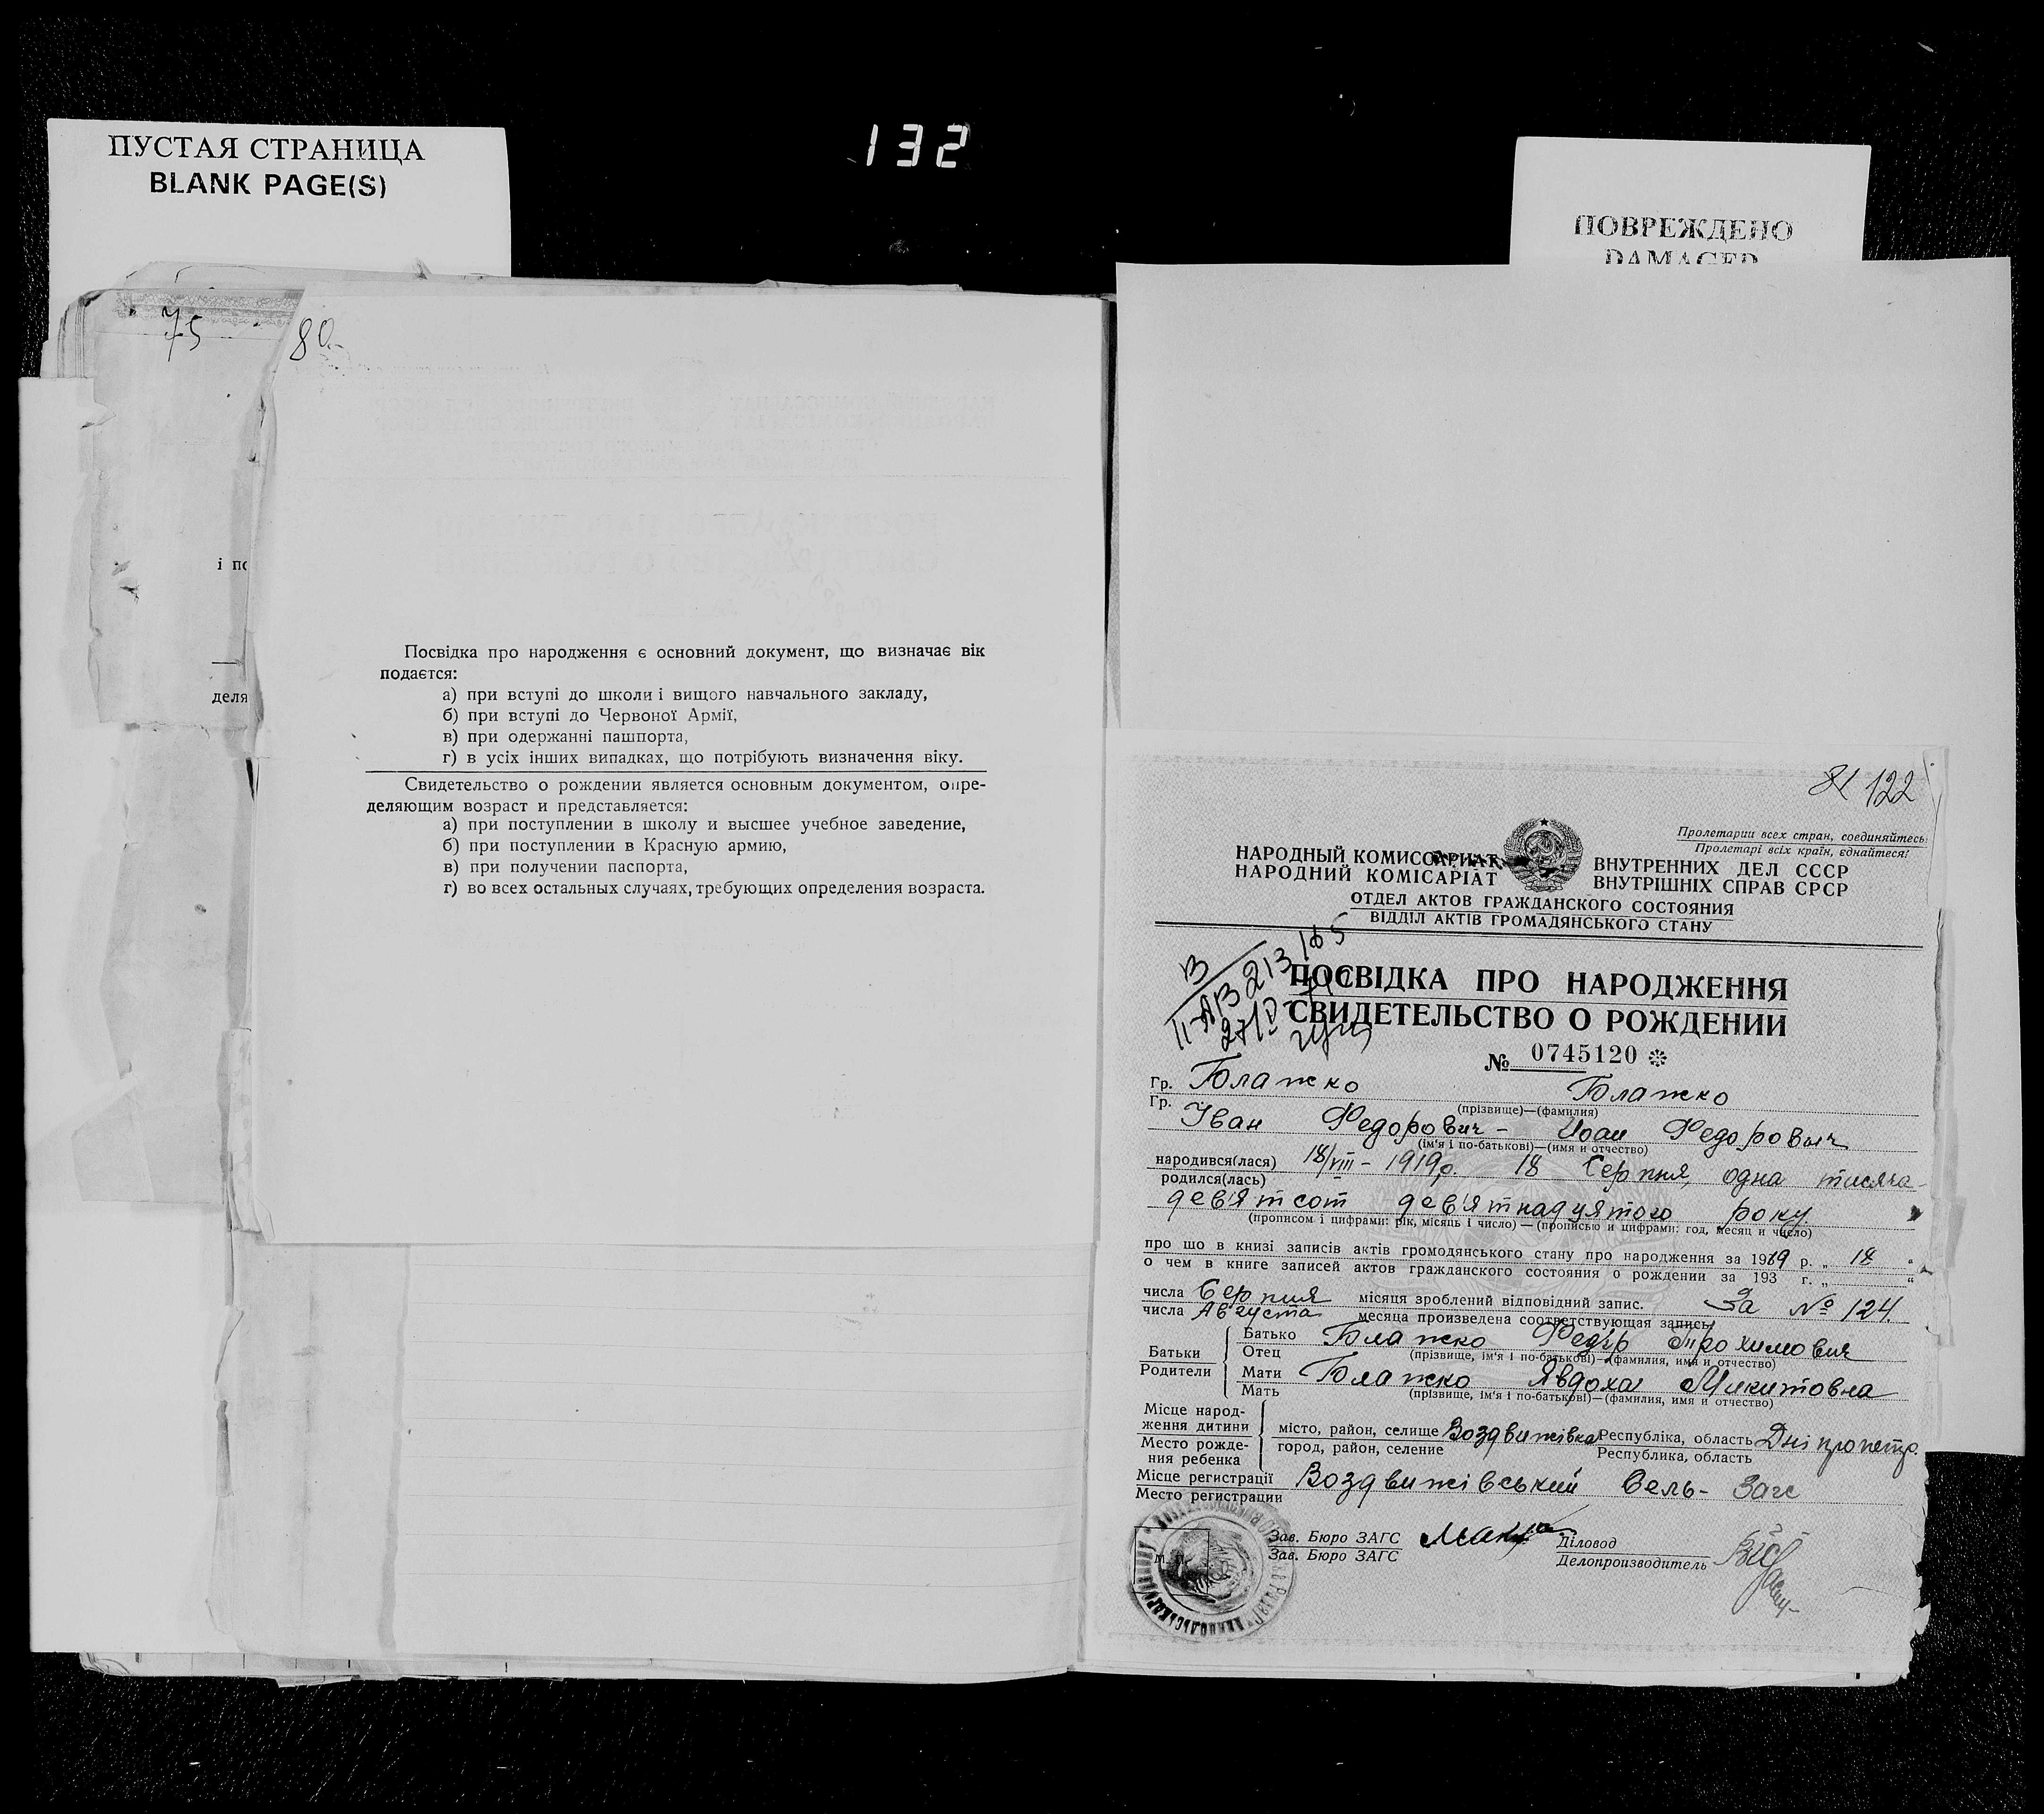 ПУСТАЯ СТРАНИЦА
BLANK PAGE(S)
132
ПОВРЕЖДЕНО
DAMAGED
75
80
і по
деля
Посвідка про народження є основний документ, що визначає вік
подається:
а) при вступі до школи і вищого навчального закладу,
б) при вступі до Червоної Армії,
в) при одержанні пашпорта,
г) в усіх інших випадках, що потрібують визначення віку.
Свидетельство о рождении является основным документом, опре-
деляющим возраст и представляется:
а) при поступлении в школу и высшее учебное заведение,
б) при поступлении в Красную армию,
в) при получении паспорта,
г) во всех остальных случаях, требующих определения возраста.
122
Пролетарии всех стран, соединяйтесь!
Пролетарі всіх країн, єднайтеся!
НАРОДНЫЙ КОМИССАРИАТ ВНУТРЕННИХ ДЕЛ СССР
НАРОДНИЙ КОМІСАРІАТ ВНУТРІШНІХ СПРАВ СРСР
ОТДЕЛ АКТОВ ГРАЖДАНСКОГО СОСТОЯНИЯ
ВІДДІЛ АКТІВ ГРОМАДЯНСЬКОГО СТАНУ
ПОСВІДКА ПРО НАРОДЖЕННЯ
СВИДЕТЕЛЬСТВО О РОЖДЕНИИ
№ 0745120
Гр. Блажко Блажко
Гр. (прізвище)—(фамилия)
Іван Федорович - Иван Федорович
(ім'я і по-батькові)—(имя и отчество)
народився(лася) 18/VIII - 1919р. 18 Серпня, одна тисяча
родился(лась)
дев'ятсот дев'ятнадцятого року
(прописом і цифрами: рік, місяць і число) — (прописью и цифрами: год, месяц и число)
про що в книзі записів актів громодянського стану про народження за 1919 р. „ 18 “
о чем в книге записей актов гражданского состояния о рождении за 193 г. „ “
числа Серпня місяця зроблений відповідний запис. За № 124.
числа Августа месяца произведена соответствующая запись
Батьки
Родители
Батько Блажко Федір Трохимович
Отец (прізвище, ім'я і по-батькові)—(фамилия, имя и отчество)
Мати Блажко Явдоха Микитовна
Мать (прізвище, ім'я і по-батькові)—(фамилия, имя и отчество)
Місце народ-
ження дитини
Место рожде-
ния ребенка
місто, район, селище Воздвижівка Республіка, область Дніпропетр.
город, район, селение Республика, область
Місце регистрації Воздвижівський Сель- Загс
Место регистрации
Зав. Бюро ЗАГС
Зав. Бюро ЗАГС
Діловод
Делопроизводитель
М. П.